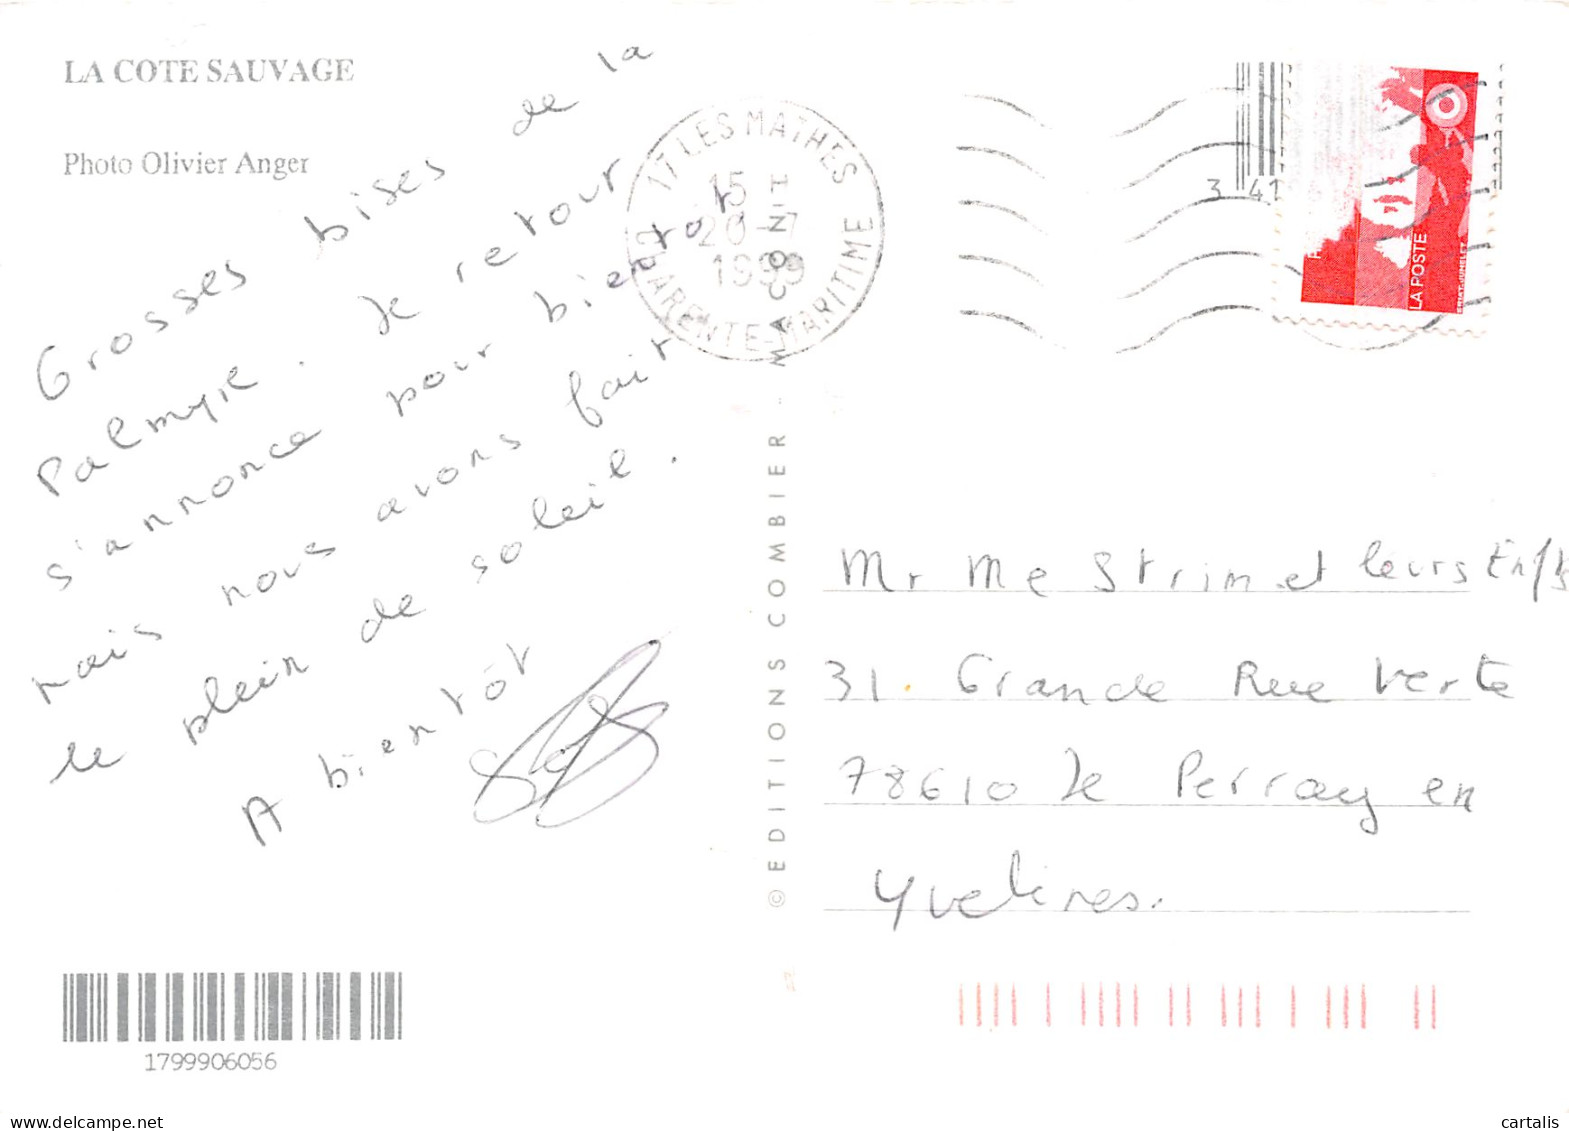 LA COTE SAUVAGE
Photo Olivier Anger
Grosses bises de la
Palmyre. Le retour
s'annonce pour bientôt
mais nous avons fait
le plein de soleil.
A bientôt
17 LES MATHES
15 H
20-7
1999
CHARENTE-MARITIME
3 41
LA POSTE
© EDITIONS COMBIER - MACON
Mr Me Strim et leurs Enfts
31. Grande Rue Verte
78610 Le Perray en
Yvelines.
1799906056
cartalis